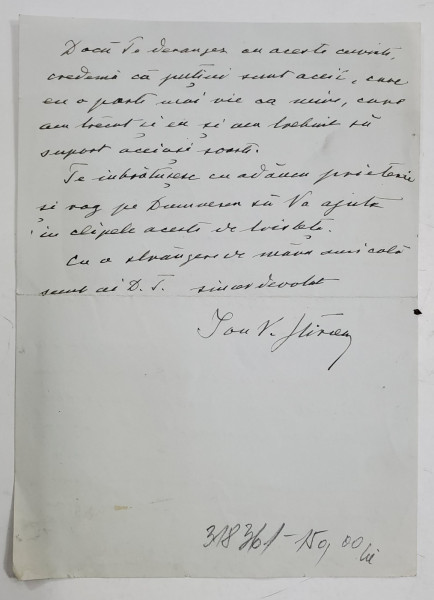 Dacă Te deranjez cu aceste cuvinte,
crede-mă că puțini sunt aceii, care
cu o parte mai vie ca mine, care
am trecut și eu și am trebuit să
suport aceiași soartă.
Te îmbrățișez cu adâncă prietenie
și rog pe Dumnezeu să Vă ajute
în clipele aceste de tristețe.
Cu o strângere de mână amicală
sunt al D. T. sincer devotat
Ion V.
318361-150,00 lei